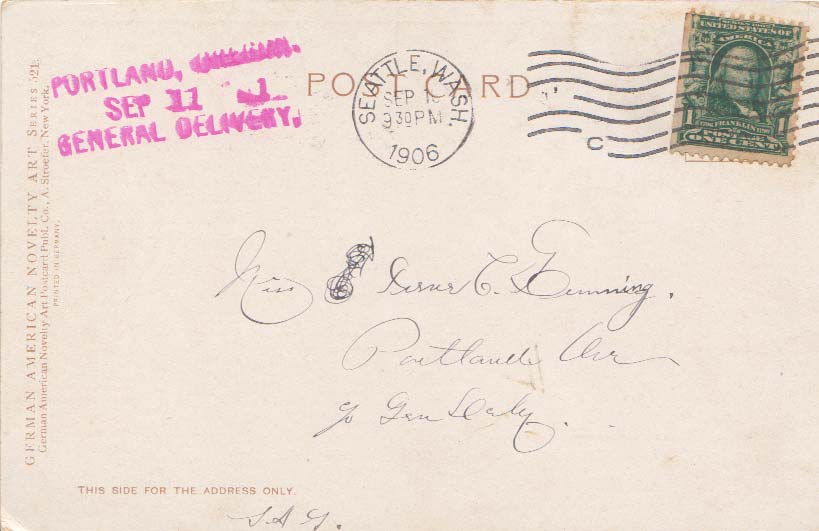 PORTLAND, OREGON.
SEP 11 1
GENERAL DELIVERY.
POST CARD
SEATTLE, WASH.
SEP 10
930PM
1906
C
UNITED STATES OF
AMERICA
1 FRANKLIN 1
POSTAGE
ONE CENT
GERMAN AMERICAN NOVELTY ART SERIES 521.
German American Novelty Art Postcard Publ. Co., A. Stroefer, New York.
PRINTED IN GERMANY.
Miss C.
Portland Ore
c/o Gen Dely.
THIS SIDE FOR THE ADDRESS ONLY.
S.A.G.